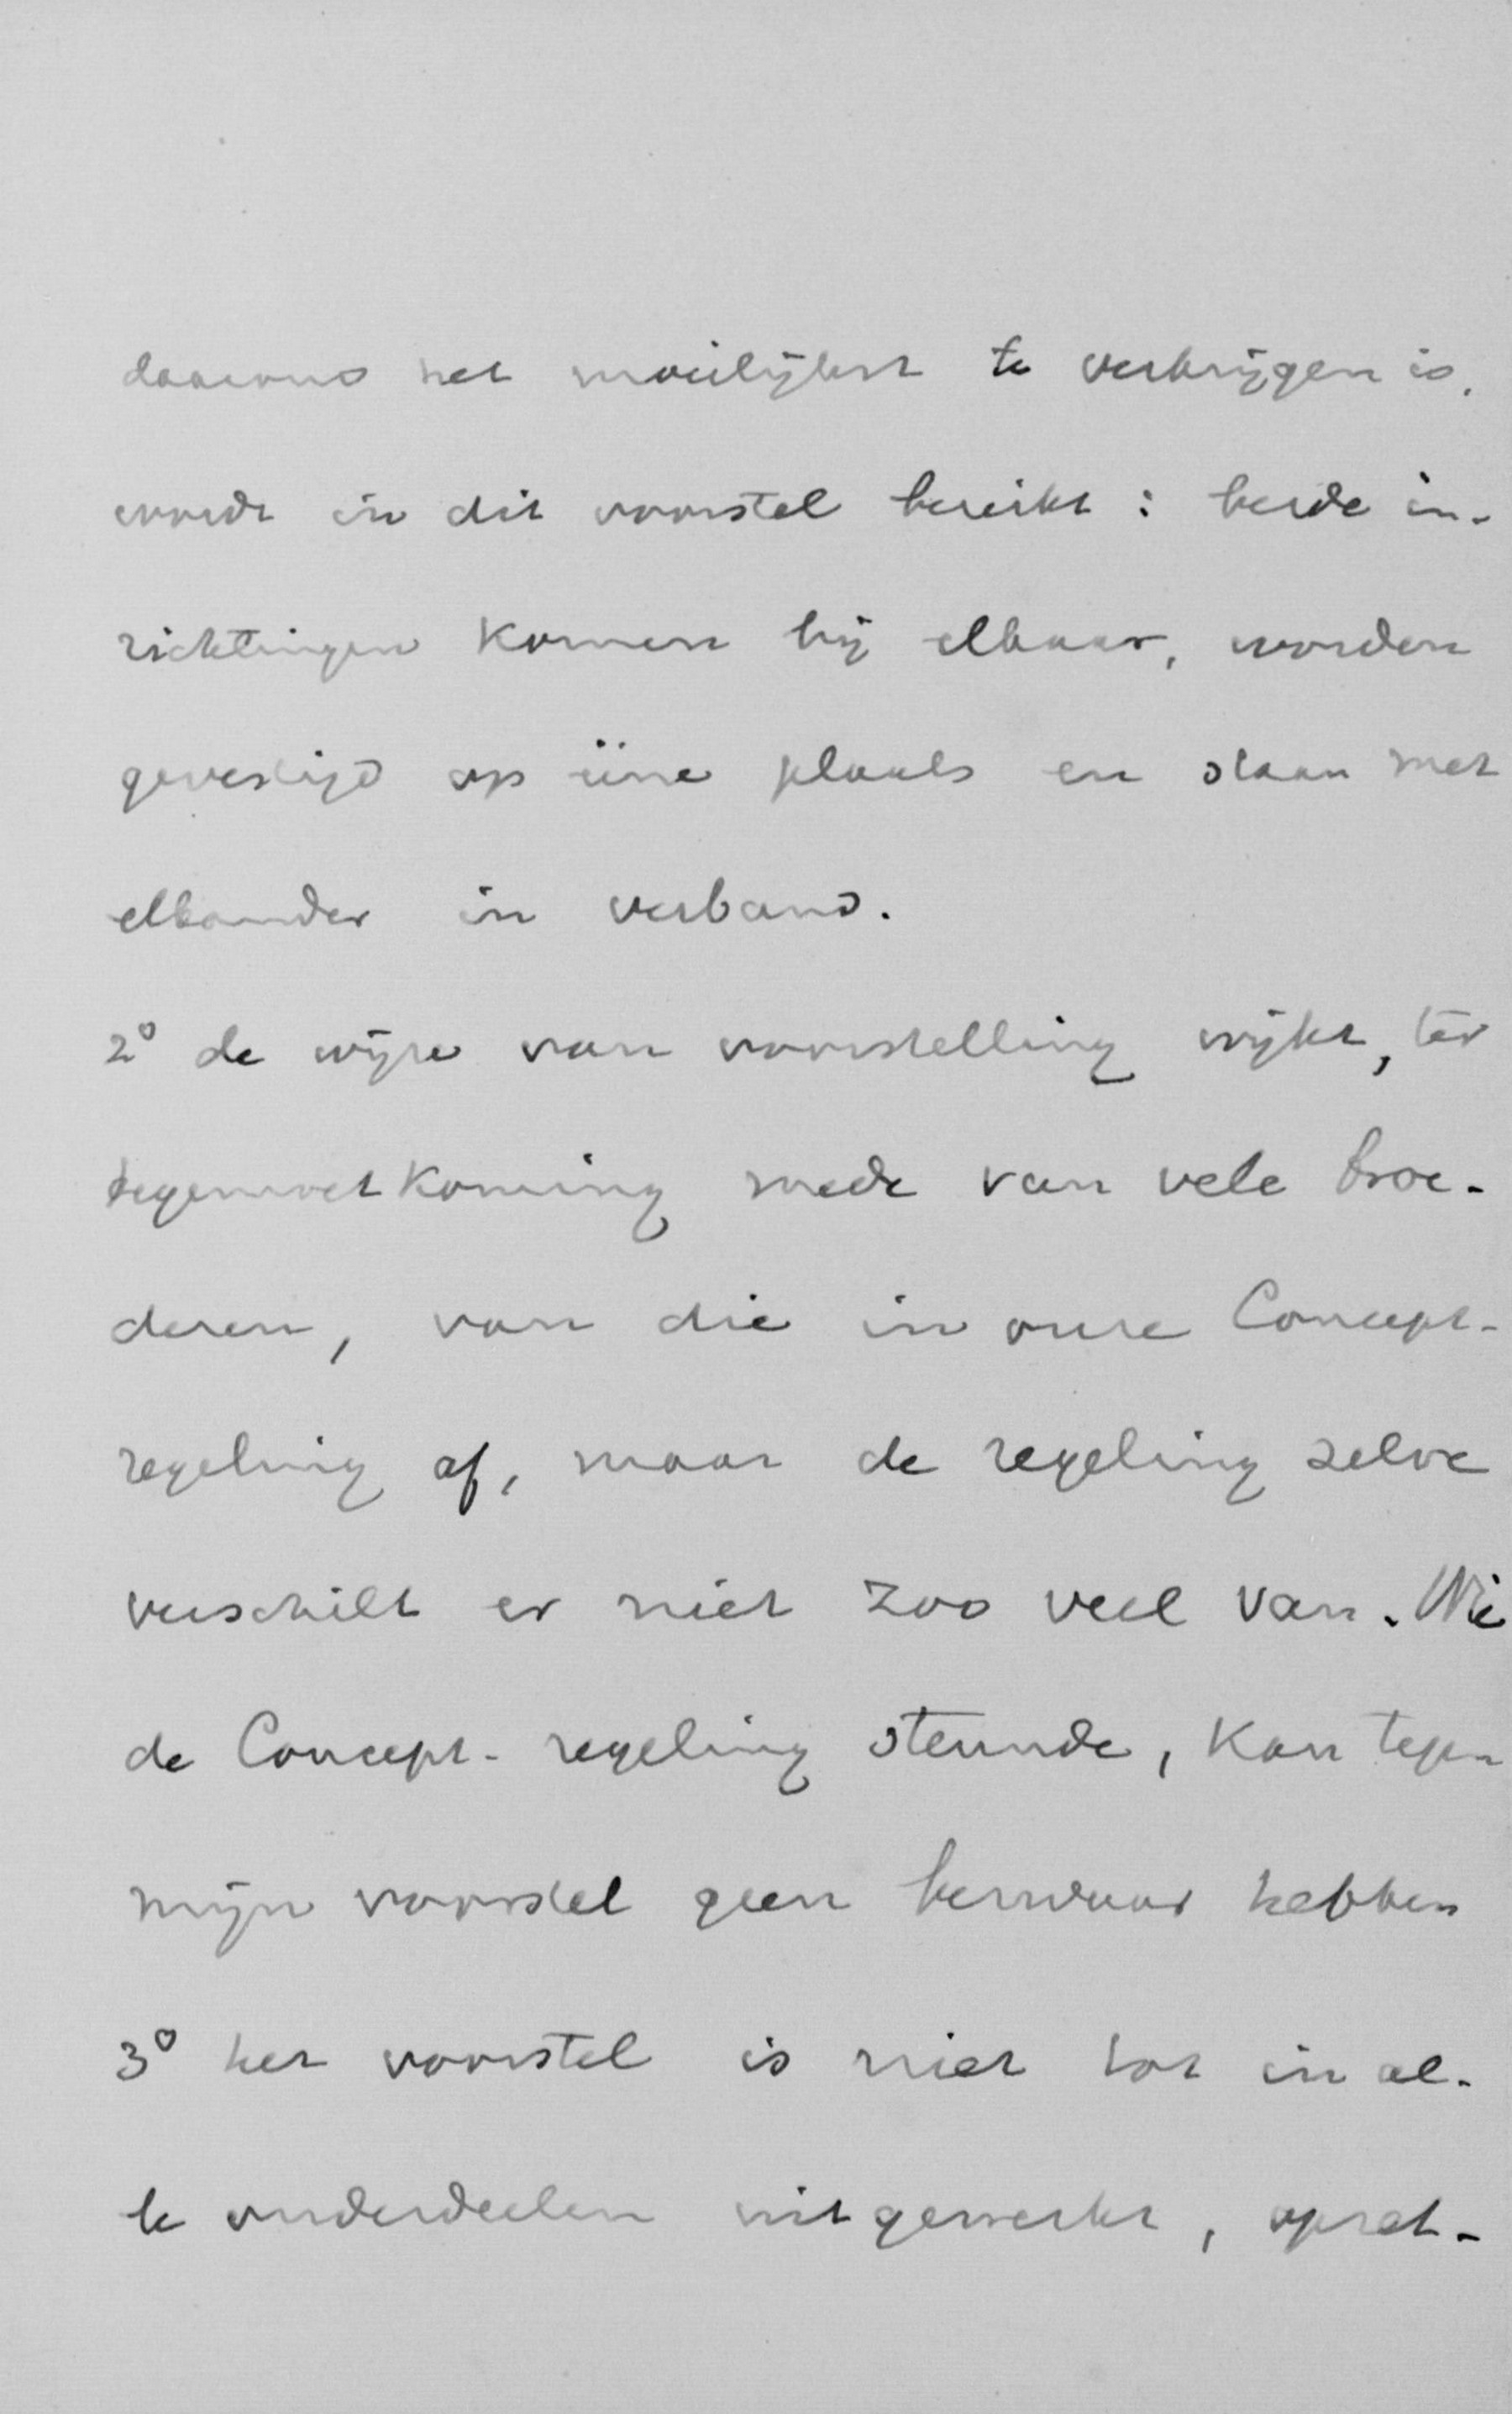 daarvan het moeilijkst te verkrijgen is,
wordt in dit voorstel bereikt: beide in-
richtingen komen bij elkaar, worden
gevestigd op ééne plaats en staan met
elkander in verband.
2° de wijze van voorstelling wijkt, ter
tegemoetkoming mede van vele broe-
deren, van die in onze Concept-
regeling af, maar de regeling zelve
verschilt er niet zoo veel van. Wie
de Concept-regeling steunde, kan tegen
mijn voorstel geen bezwaar hebben
3° het voorstel is niet tot in al-
le onderdeelen uitgewerkt, opzet-